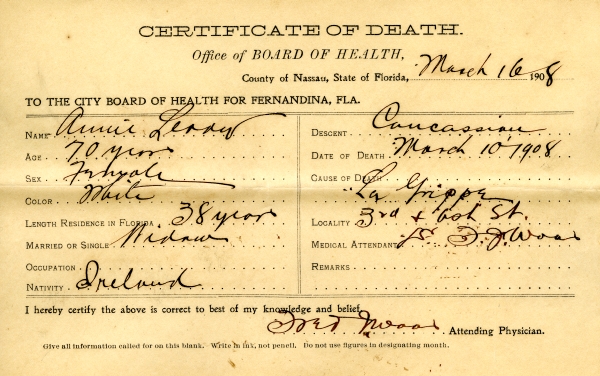 CERTIFICATE OF DEATH.
Office of BOARD OF HEALTH,
County of Nassau, State of Florida, March 16 1908
TO THE CITY BOARD OF HEALTH FOR FERNANDINA, FLA.
NAME Annie Leddy
AGE 70 years
SEX Female
COLOR White
LENGTH RESIDENCE IN FLORIDA 38 years
MARRIED OR SINGLE Widow
OCCUPATION
NATIVITY Ireland
DESCENT Caucassian
DATE OF DEATH March 10 1908
CAUSE OF DEATH
La Grippe
LOCALITY 3rd & Ash St.
MEDICAL ATTENDANT Dr
REMARKS
I hereby certify the above is correct to best of my knowledge and belief.
Attending Physician.
Give all information called for on this blank. Write in ink, not pencil. Do not use figures in designating month.